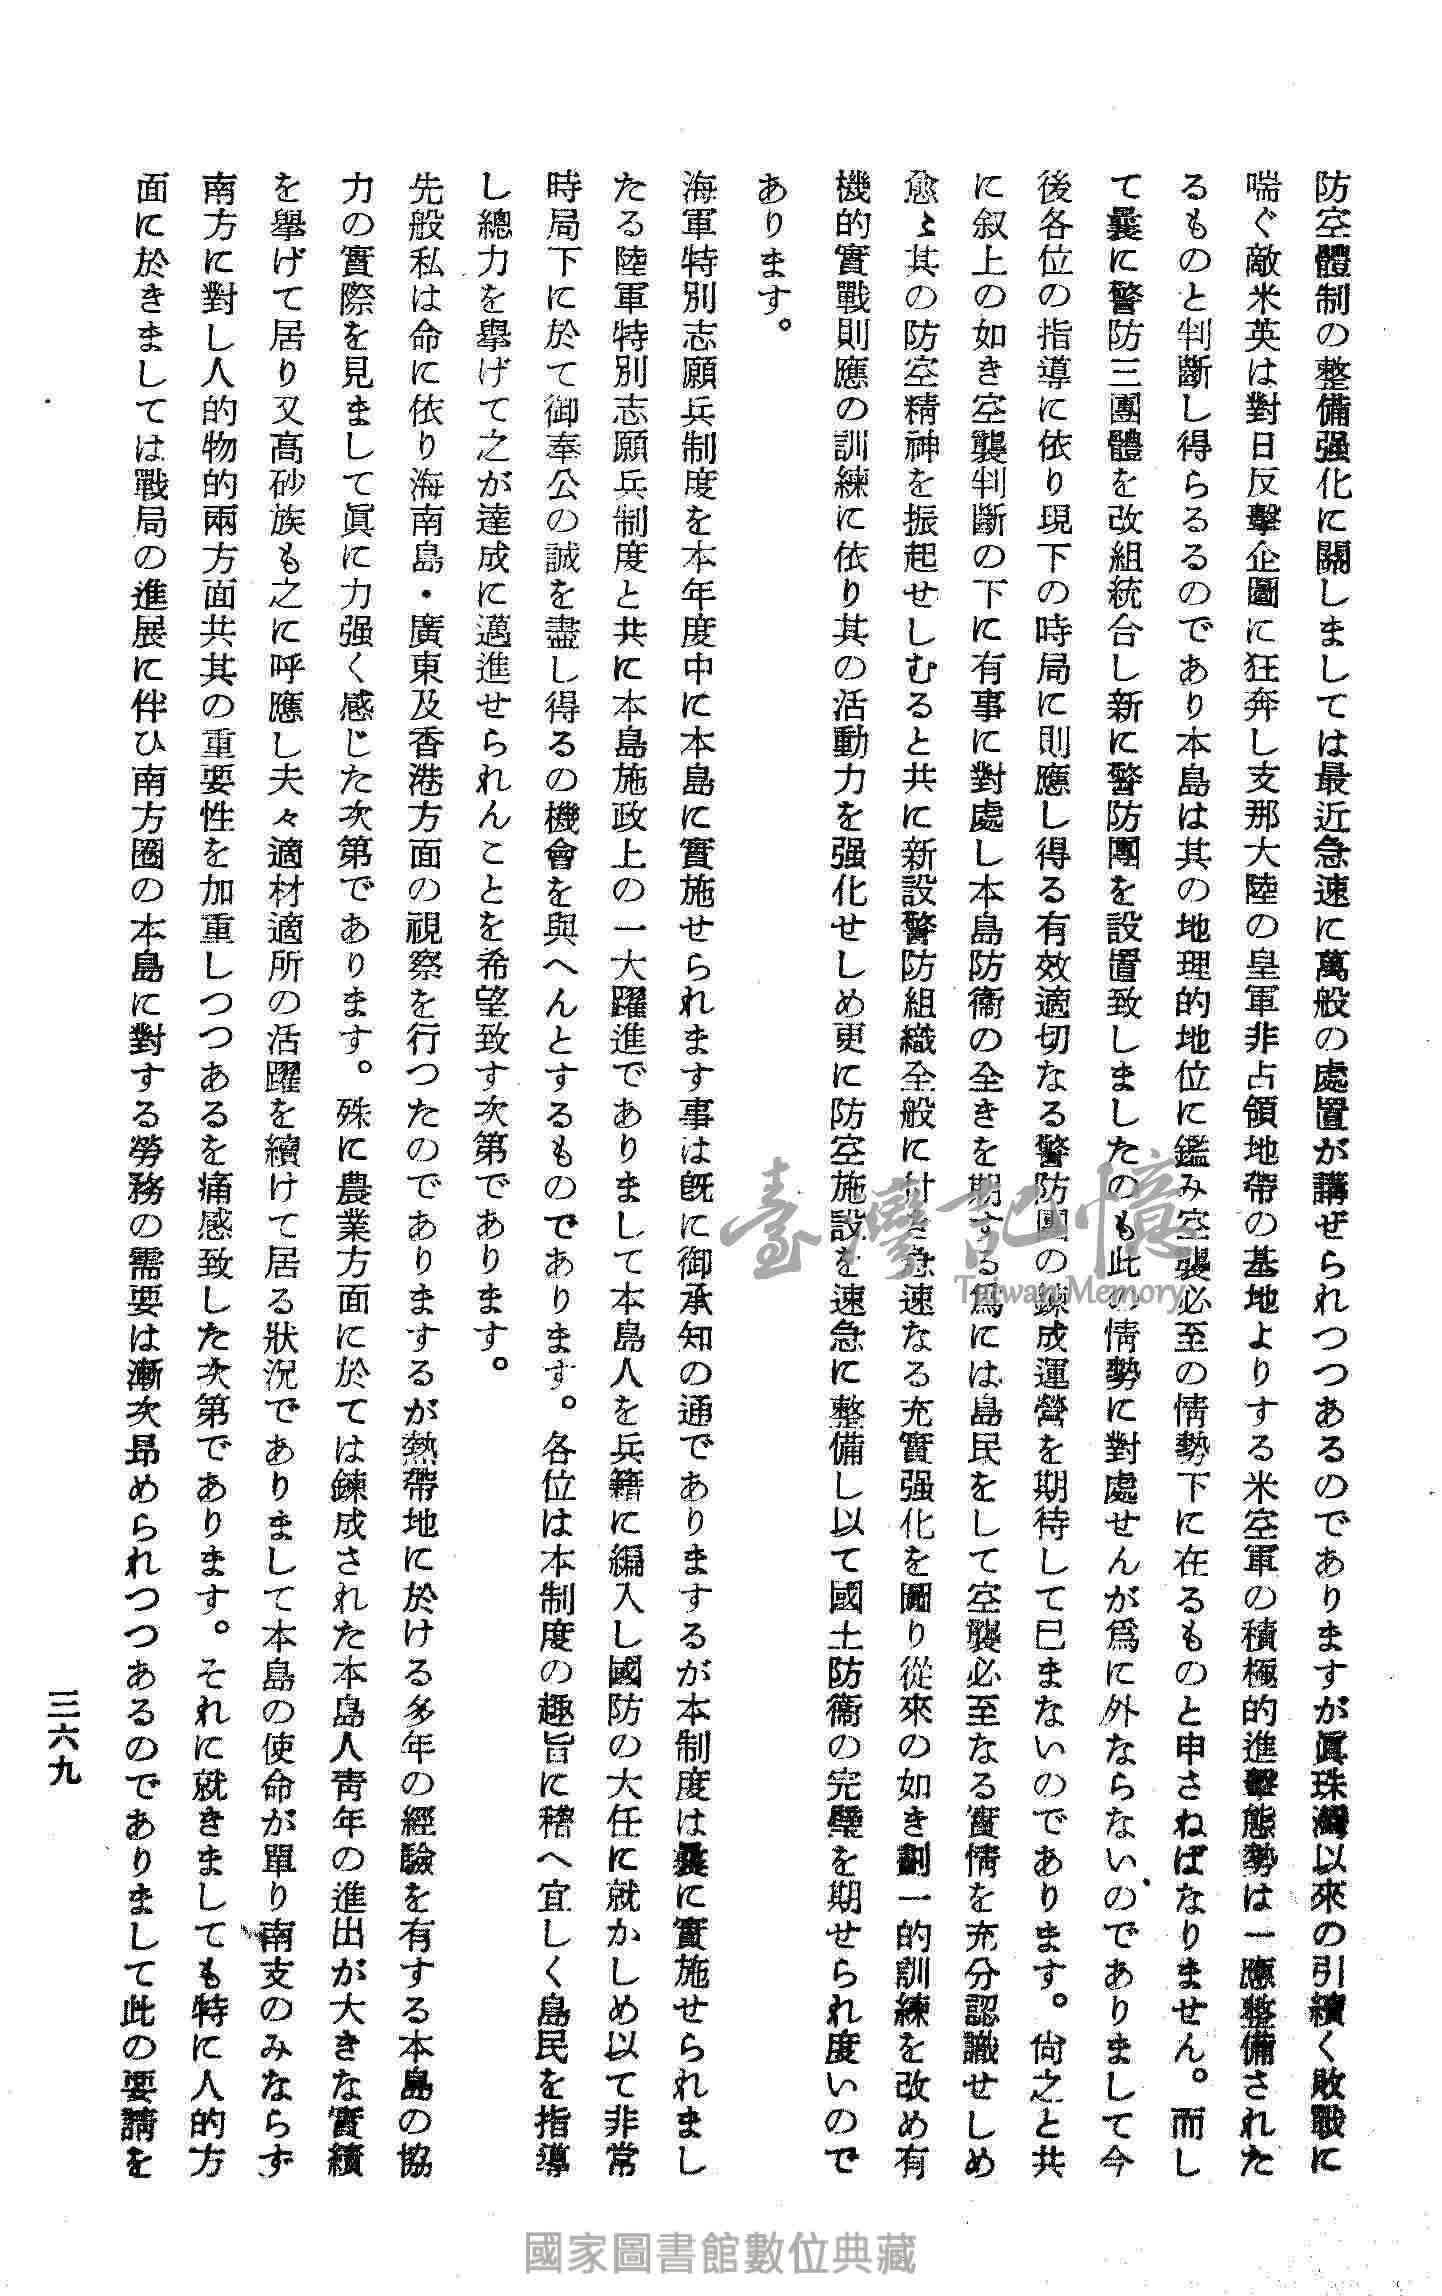 防空體制の整備强化に關しましては最近急速に萬般の處置が講ぜられつつあるのでありますが眞珠灣以來の引續く敗戰に
喘ぐ敵米英は對日反擊企圖に狂奔し支那大陸の皇軍非占領地帶の基地よりする米空軍の積極的進擊態勢は一應整備された
るものと判斷し得らるるのであり本島は其の地理的地位に鑑み空襲必至の情勢下に在るものと申さねばなりません。而し
て曩に警防三團體を改組統合し新に警防團を設置致しましたのも此の情勢に對處せんが爲に外ならないのでありまして今
後各位の指導に依り現下の時局に則應し得る有效適切なる警防團の鍊成運營を期待して已まないのであります。尙之と共
に叙上の如き空襲判斷の下に有事に對處し本島防衞の全きを期する爲には島民をして空襲必至なる實情を充分認識せしめ
愈〻其の防空精神を振起せしむると共に新設警防組織全般に付き急速なる充實强化を圖り從來の如き劃一的訓練を改め有
機的實戰則應の訓練に依り其の活動力を强化せしめ更に防空施設を速急に整備し以て國土防衞の完璧を期せられ度いので
あります。
海軍特別志願兵制度を本年度中に本島に實施せられます事は旣に御承知の通でありまするが本制度は曩に實施せられまし
たる陸軍特別志願兵制度と共に本島施政上の一大躍進でありまして本島人を兵籍に編入し國防の大任に就かしめ以て非常
時局下に於て御奉公の誠を盡し得るの機會を與へんとするものであります。各位は本制度の趣旨に稽へ宜しく島民を指導
し總力を擧げて之が達成に邁進せられんことを希望致す次第であります。
先般私は命に依り海南島・廣東及香港方面の視察を行つたのでありまするが熱帶地に於ける多年の經驗を有する本島の協
力の實際を見まして眞に力强く感じた次第であります。殊に農業方面に於ては鍊成された本島人靑年の進出が大きな實績
を擧げて居り又高砂族も之に呼應し夫々適材適所の活躍を續けて居る狀況でありまして本島の使命が單り南支のみならず
南方に對し人的物的兩方面共其の重要性を加重しつつあるを痛感致した次第であります。それに就きましても特に人的方
面に於きましては戰局の進展に伴ひ南方圈の本島に對する勞務の需要は漸次昻められつつあるのでありまして此の要請を
三六九
臺灣記憶
Taiwan Memory
國家圖書館數位典藏